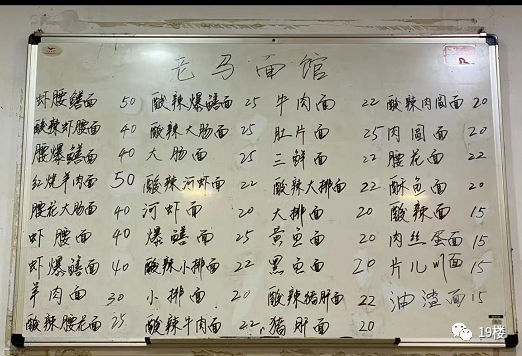 老马面馆
虾腰鳝面 50 酸辣爆鳝面 25 牛肉面 22 酸辣肉圆面 20
酸辣虾腰面 40 酸辣大肠面 25 肚片面 25 肉圆面 20
腰爆鳝面 40 大肠面 25 三鲜面 22 腰花面 22
红烧羊肉面 50 酸辣河虾面 22 酸辣大排面 22 酥鱼面 20
腰花大肠面 40 河虾面 20 大排面 20 酸辣面 15
虾腰面 40 爆鳝面 25 黄鱼面 20 肉丝蛋面 15
虾爆鳝面 40 酸辣小排面 22 黑鱼面 20 片儿川面 15
羊肉面 30 小排面 20 酸辣猪肝面 22 油渣面 15
酸辣腰花面 25 酸辣牛肉面 22 猪肝面 20
19楼